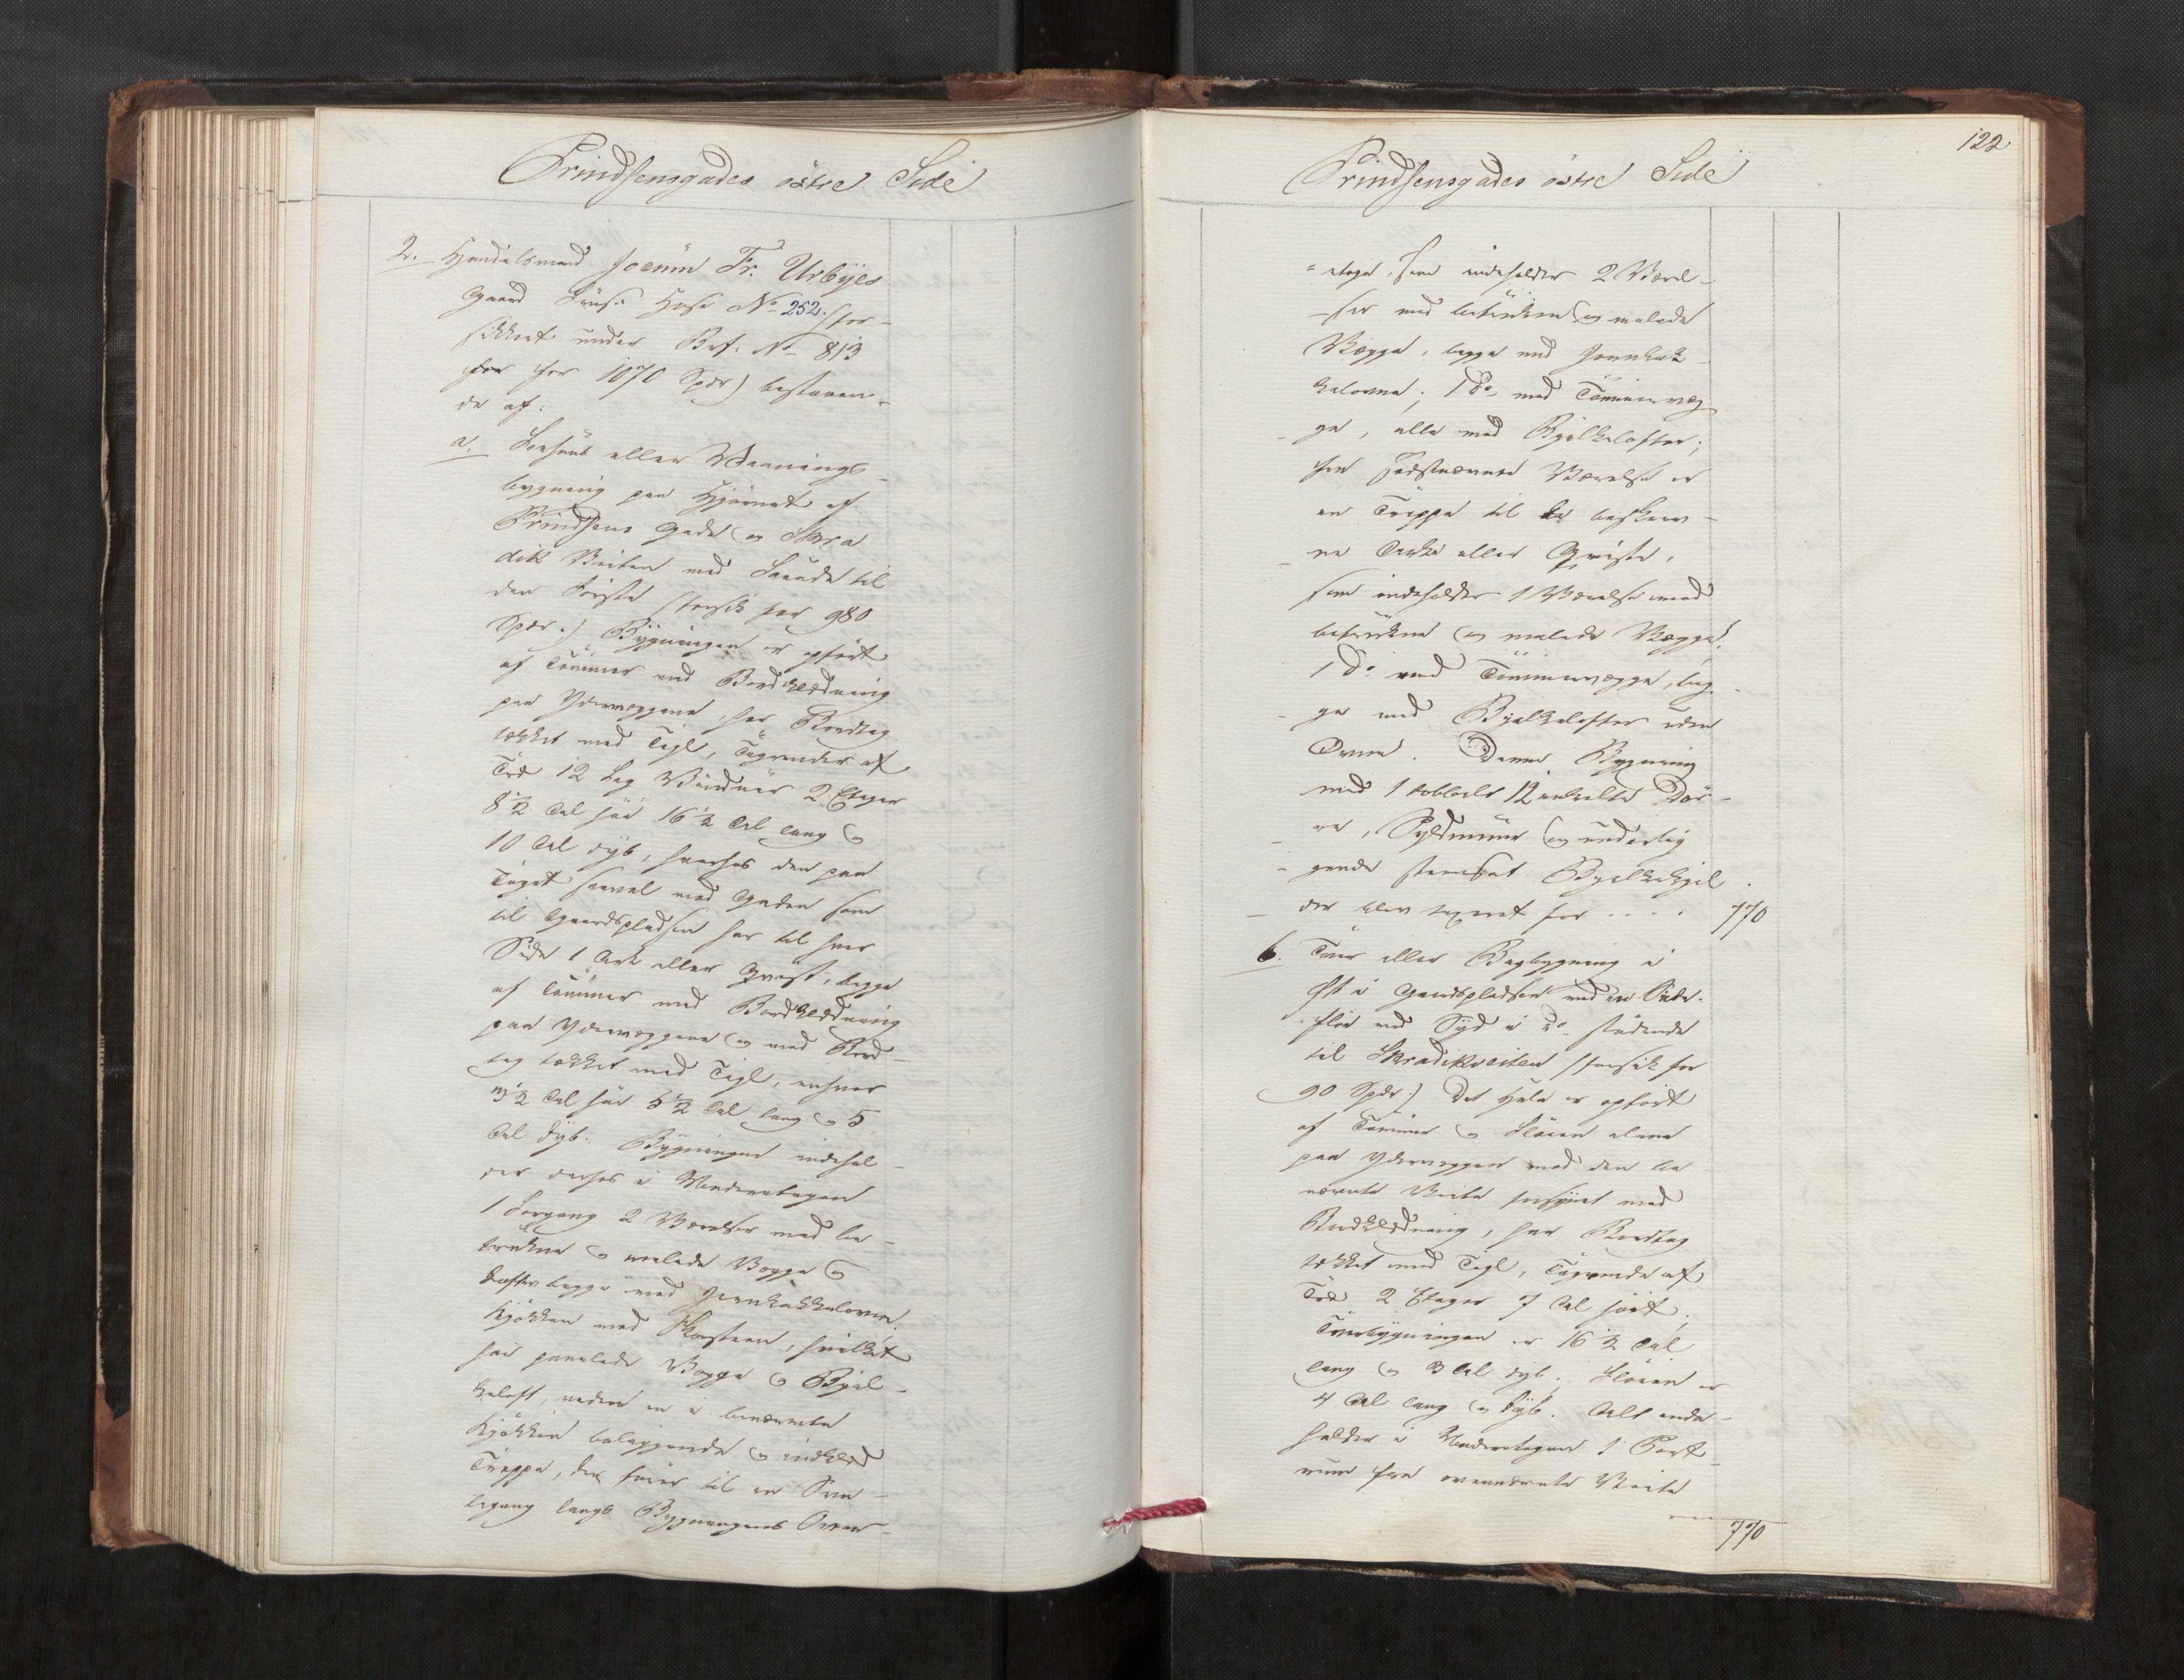 Prindsensgades östre Side
2. Handelsmand Joenim Fr. Urbyes
Gaard Huus No 252. (for-
sikkret under Brf: No 813
for 1070 Spdr) bestaaen-
de af:
a. Forhuus eller Vaanings
bygning paa Hjörnet af
Prindsens Gade og Skra
dik Veiten med Facade til
den Förste (forsik for 980
Spdr.) Bygningen er opfört
af Tömmer med Bordklædning
paa Ydervæggene, har Bordtag
tækket med Tegl, Tagrender af
Træ 12 Fag Vinduer 2 Etager
8½ Al höi 16½ Al lang og
10 Al dyb, hvorhos den paa
Taget saavel mod Gaden som
til Gaardspladsen har til hver
Side 1 Ark eller Qvist, begge
af Tömmer med Bordklædning
paa Ydervæggene og med Bord-
tag tækket med Tegl, enhver
3½ Al höi 5½ Al lang og 5
Al dyb. Bygningen indehol-
der derhos i Underetagen
1 Forgang 2 Værelser med be-
trukne og malede Vægge og
Lofter begge med Jernkakkelovne,
Kjökken med Skorsteen, hvilket
har panelede Vægge og Bjel-
keloft, uden en i benævnte
Kjökken beliggende og indklæd
Trappe, der förer til en Sva-
legang langs Bygningens Over-
122
Prindsensgades östre Side
=etage, som indeholder 2 Værel-
-ser med betrukne og malede
Vægge, begge med Jernkak
kelovne; 1 do med Tömmervæg
-ge, alle med Bjelkelofter;
fra sidstnævnte Værelse er
en Trappe til de beskrev-
ne Arke eller Qviste,
som indeholder 1 Værelse med
betrukne og malede Vægge,
1 do med Tömmervægge, beg-
-ge med Bjelkelofter uden
Ovne. Denne Bygning
med 1 dobbelt 12 enkelte Dör-
-re, Syldmuur og underlig
-gende steensat Bjelkekjel
-der blev taxeret for .... 770
b. Tver eller Bagbygning i
Öst i Gaardspladsen med en Side-
flöi med Syd i do stödende
til Skradikveiten (forsik for
90 Spdr.) Det Hele er opfört
af Tömmer og Flöien alene
paa Ydervæggen mod den be
nævnte Veite forsynet med
Bordklædning, har Bordtag
tækket med Tegl, Tagrende af
Træ 2 Etager 7 Al höit;
Tverbygningen er 16½ Al
lang og 3 Al dyb; Flöien er
4 Al lang og dyb. Alt inde-
holder i Underetagen 1 Port-
rum fra ovennævnte Veite
770